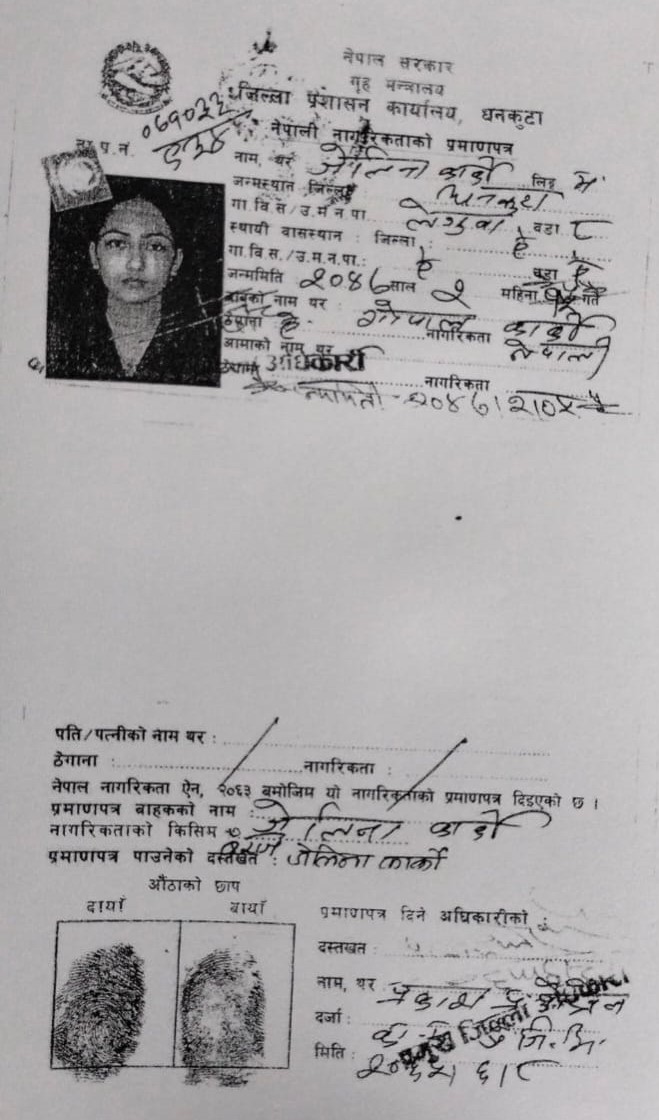 नेपाल सरकार
गृह मन्त्रालय
जिल्ला प्रशासन कार्यालय, धनकुटा
नेपाली नागरिकताको प्रमाणपत्र
ना. प्र. नं.
नाम, थर जेलिना कार्की लिङ्ग म.
जन्मस्थान जिल्ला धनकुटा
गा.वि.स./उ.म.न.पा. लेगुवा, वडा ८
स्थायी वासस्थान : जिल्ला, ऐ
गा.वि.स./उ.म.न.पा.: ऐ वडा ऐ
जन्ममिति २०४७ साल २ महिना गते
बाबुको नाम थर : गोपाल कार्की
ठेगाना ऐ. नागरिकता नेपाली
आमाको नाम थर
ठेगाना अधिकारी नागरिकता
पति/पत्नीको नाम थर :
ठेगाना : नागरिकता :
नेपाल नागरिकता ऐन, २०६३ बमोजिम यो नागरिकताको प्रमाणपत्र दिइएको छ ।
प्रमाणपत्र बाहकको नाम : जेलिना कार्की
नागरिकताको किसिम : वंशज
प्रमाणपत्र पाउनेको दस्तखत : जेलिना कार्की
औंठाको छाप
दायाँ बायाँ
प्रमाणपत्र दिने अधिकारीको :
दस्तखत :
नाम, थर प्रकाश
दर्जा : प्रमुख जिल्ला अधिकारी
मिति :